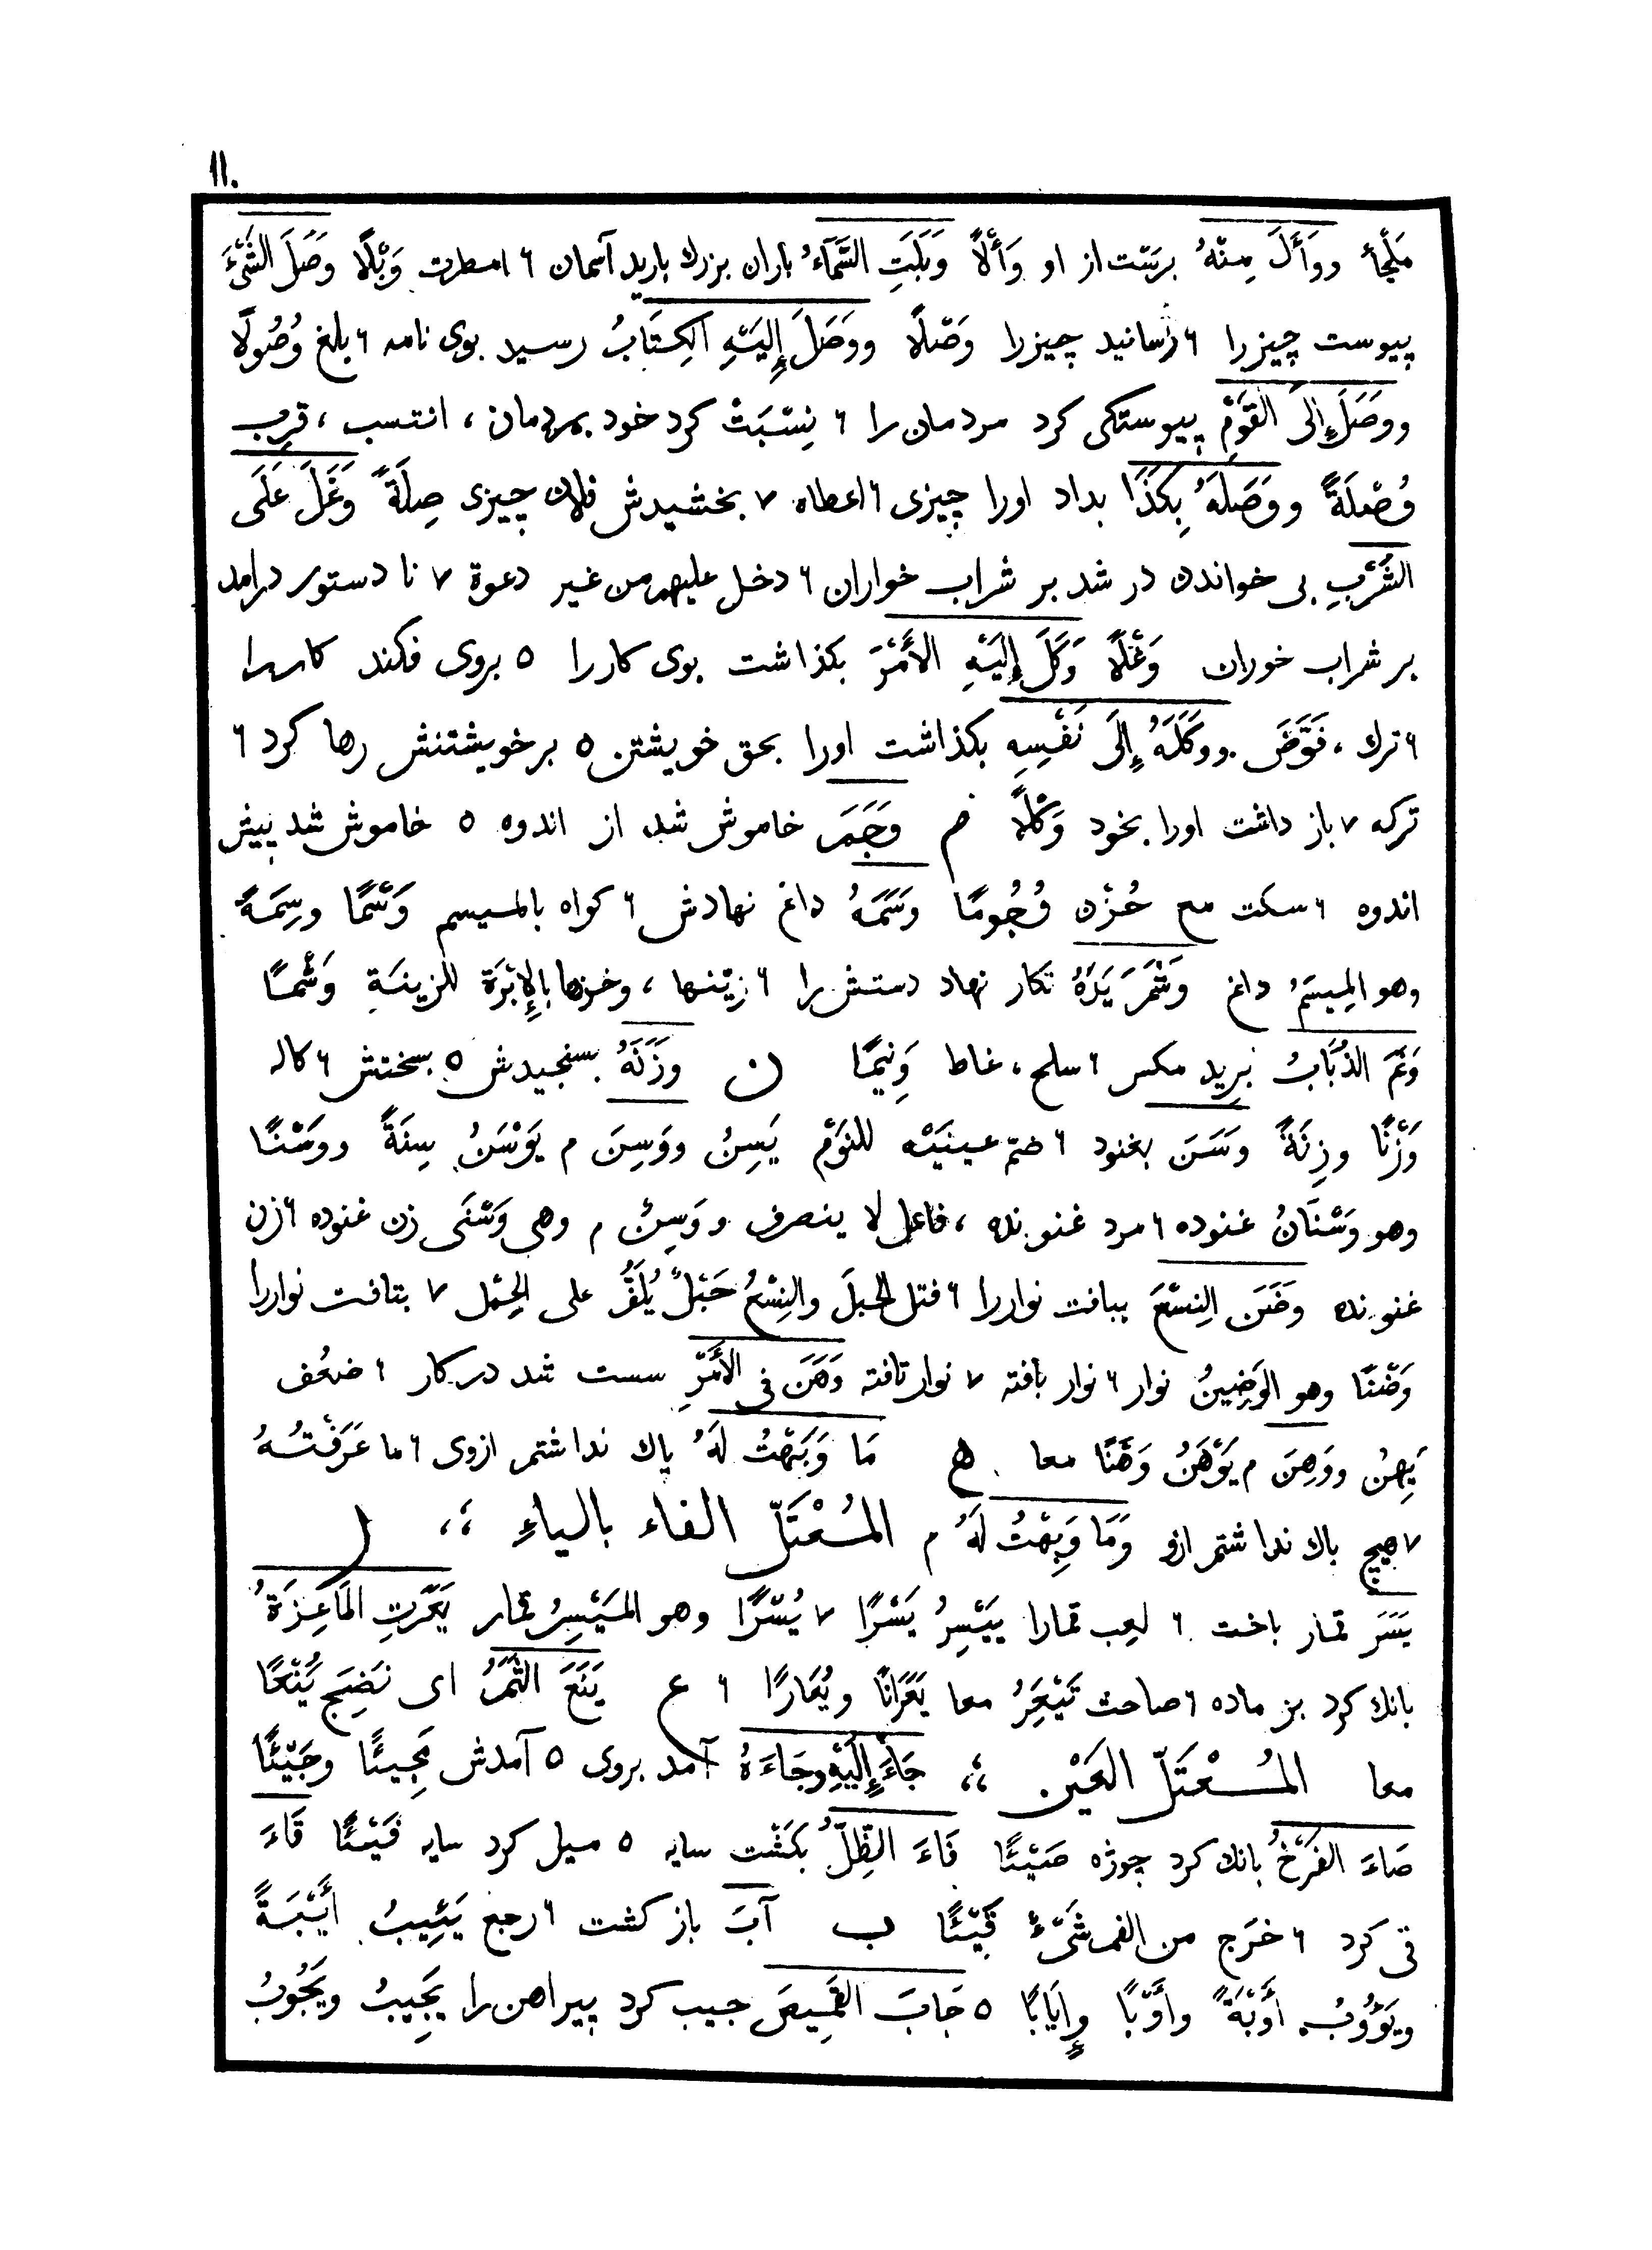 ١١٠
مَلْجأ ووَأَلَ مِنْهُ برَست از او وَأْلًا وَبَلَتِ السَّمَآءُ باران بزرك باريد آسمان ٦ امطرت وَبْلًا وصَلَ الشَّيْءَ
پيوست چيزرا ٦ رسانيد چيزرا وَصْلًا ووَصَلَ إِلَيْهِ الكِتَابُ رسيد بوى نامه ٦ بلغ وُصُولًا
ووَصَلَ إِلىَ القَوْمِ پيوستكى كرد مردمان را ٦ نِسْبَتْ كرد خود بمردمان ، انتسب ، قرب
وُصْلَةً ووَصَلَهُ بِكَذَا بداد اورا چيزى ٦ اعطاه ٧ بخشيدش فلان چيزى صِلَةً وَغَلَ عَلَى
الشَّرْبِ بى خواندن در شد بر شراب خواران ٦ دخل عليهم من غير دعوة ٧ نا دستورى درامد
بر شراب خوران وَغْلًا وَكَلَ إِلَيْهِ الأَمْرَ بكذاشت بوى كاررا ٥ بروى فكند كاررا
٦ ترك ، فَوَّضَ . ووَكَلَهُ إِلَى نَفْسِهِ بكذاشت اورا بحق خويشتن ٥ برخويشتنش رها كرد ٦
تركه ٧ باز داشت اورا بخود وَكْلًا م وَجَمَ خاموش شد از اندوه ٥ خاموش شد پيش
اندوه ٦ سكت مع حُزْن وُجُومًا وسَمَهُ داغ نهادش ٦ كواه بالميسم وَسْمًا وسِمَةً
وهو المِيسَمُ داغ وَشَمَ يَدَهُ نكار نهاد دستش را ٦ زيّنها ، وخزها بالإِبْرَة للزينة وَشْمًا
وَنَمَ الذُّبَابُ بريد مكس ٦ سلح ، غاط وَنِيمًا ن وزَنَهُ بسنجيدش ٥ بسختش ٦ كاله
وَزْنًا وزِنَةً وسَنَ بغنود ٦ ضمّ عينيْه للنوْم يَسِنُ ووَسِنَ م يَوْسَنُ سِنَةً ووَسْنًا
وهو وَسْنَانُ غنوده ٦ مرد غنونده ، فاعل لا ينصرف ووَسِنٌ م وهى وَسْنَى زن غنوده ٦ زن
غنونده وضَنَ النِسْعَ ببافت نواررا ٦ فتل الحبلَ والنِسْعُ حَبْلٌ يُلَفُّ على الحِمْل ٧ بتافت نواررا
وَضْنًا وهو الوَضِينُ نوار ٦ نوار بافته ٧ نوار تافته وَهَنَ فى الأَمْرِ سست شد در كار ٦ ضعُف
يَهِنُ ووَهِنَ م يَوْهَنُ وَهْنًا معا ه مَا وَبَهْتُ لَهُ باك نداشتم ازوى ٦ ما عَرَفْتُهُ
٧ هيچ باك نداشتم ازو وَمَا وَبِهْتُ لَهُ م المُعْتَلّ الفاء بالياءِ ،، ر
يَسَرَ قمار باخت ٦ لعب قمارا يَيْسِرُ يَسْرًا ٧ يُسْرًا وهو المَيْسِرُ قمار يَعَرَتِ المَاعِزَةُ
بانك كرد بز ماده ٦ صاحت تَيْعَِرُ معا يَعَرَانًا ويُعَارًا ٦ ع يَنَعَ الثَّمَرُ اى نَضِجَ يَُنْعًا
معا المُعْتَلّ العَيْن ،، جَاءَ إِلَيْهِ وجَاءَهُ آمد بروى ٥ آمدش مَجِيئًا وجَيْئًا
صَاءَ الفَرْخُ بانك كرد چوژه صَيْئًا فَاءَ الظِّلُّ بكَشْت سايه ٥ ميل كرد سايه فَيْئًا قَاءَ
قى كرد ٦ خرَج من الفم شَىْءٌ قَيْئًا ب آبَ باز كشت ٦ رجع يَئِيبُ أَيْبَةً
ويَؤُوبُ أَوْبَةً وأَوْبًا وإِيَابًا ٥ جَابَ القَمِيصَ جيب كرد پيراهن را يَجِيبُ ويَجُوبُ